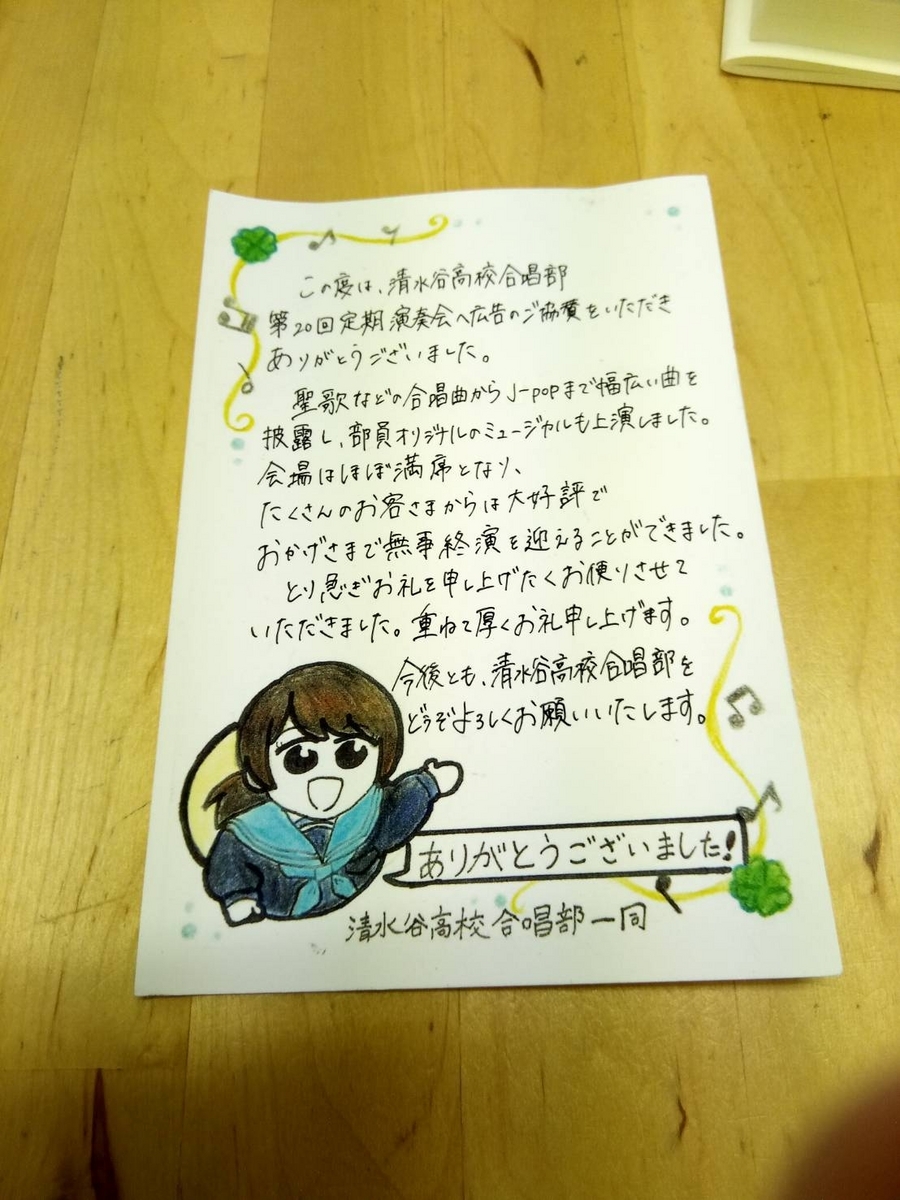 この度は、清水谷高校合唱部
第20回定期演奏会へ広告のご協賛をいただき
ありがとうございました。
聖歌などの合唱曲からJ-popまで幅広い曲を
披露し、部員オリジナルのミュージカルも上演しました。
会場はほぼ満席となり、
たくさんのお客さまからは大好評で
おかげさまで無事終演を迎えることができました。
とり急ぎお礼を申し上げたくお便りさせて
いただきました。重ねて厚くお礼申し上げます。
今後とも、清水谷高校合唱部を
どうぞよろしくお願いいたします。
ありがとうございました!
清水谷高校合唱部一同